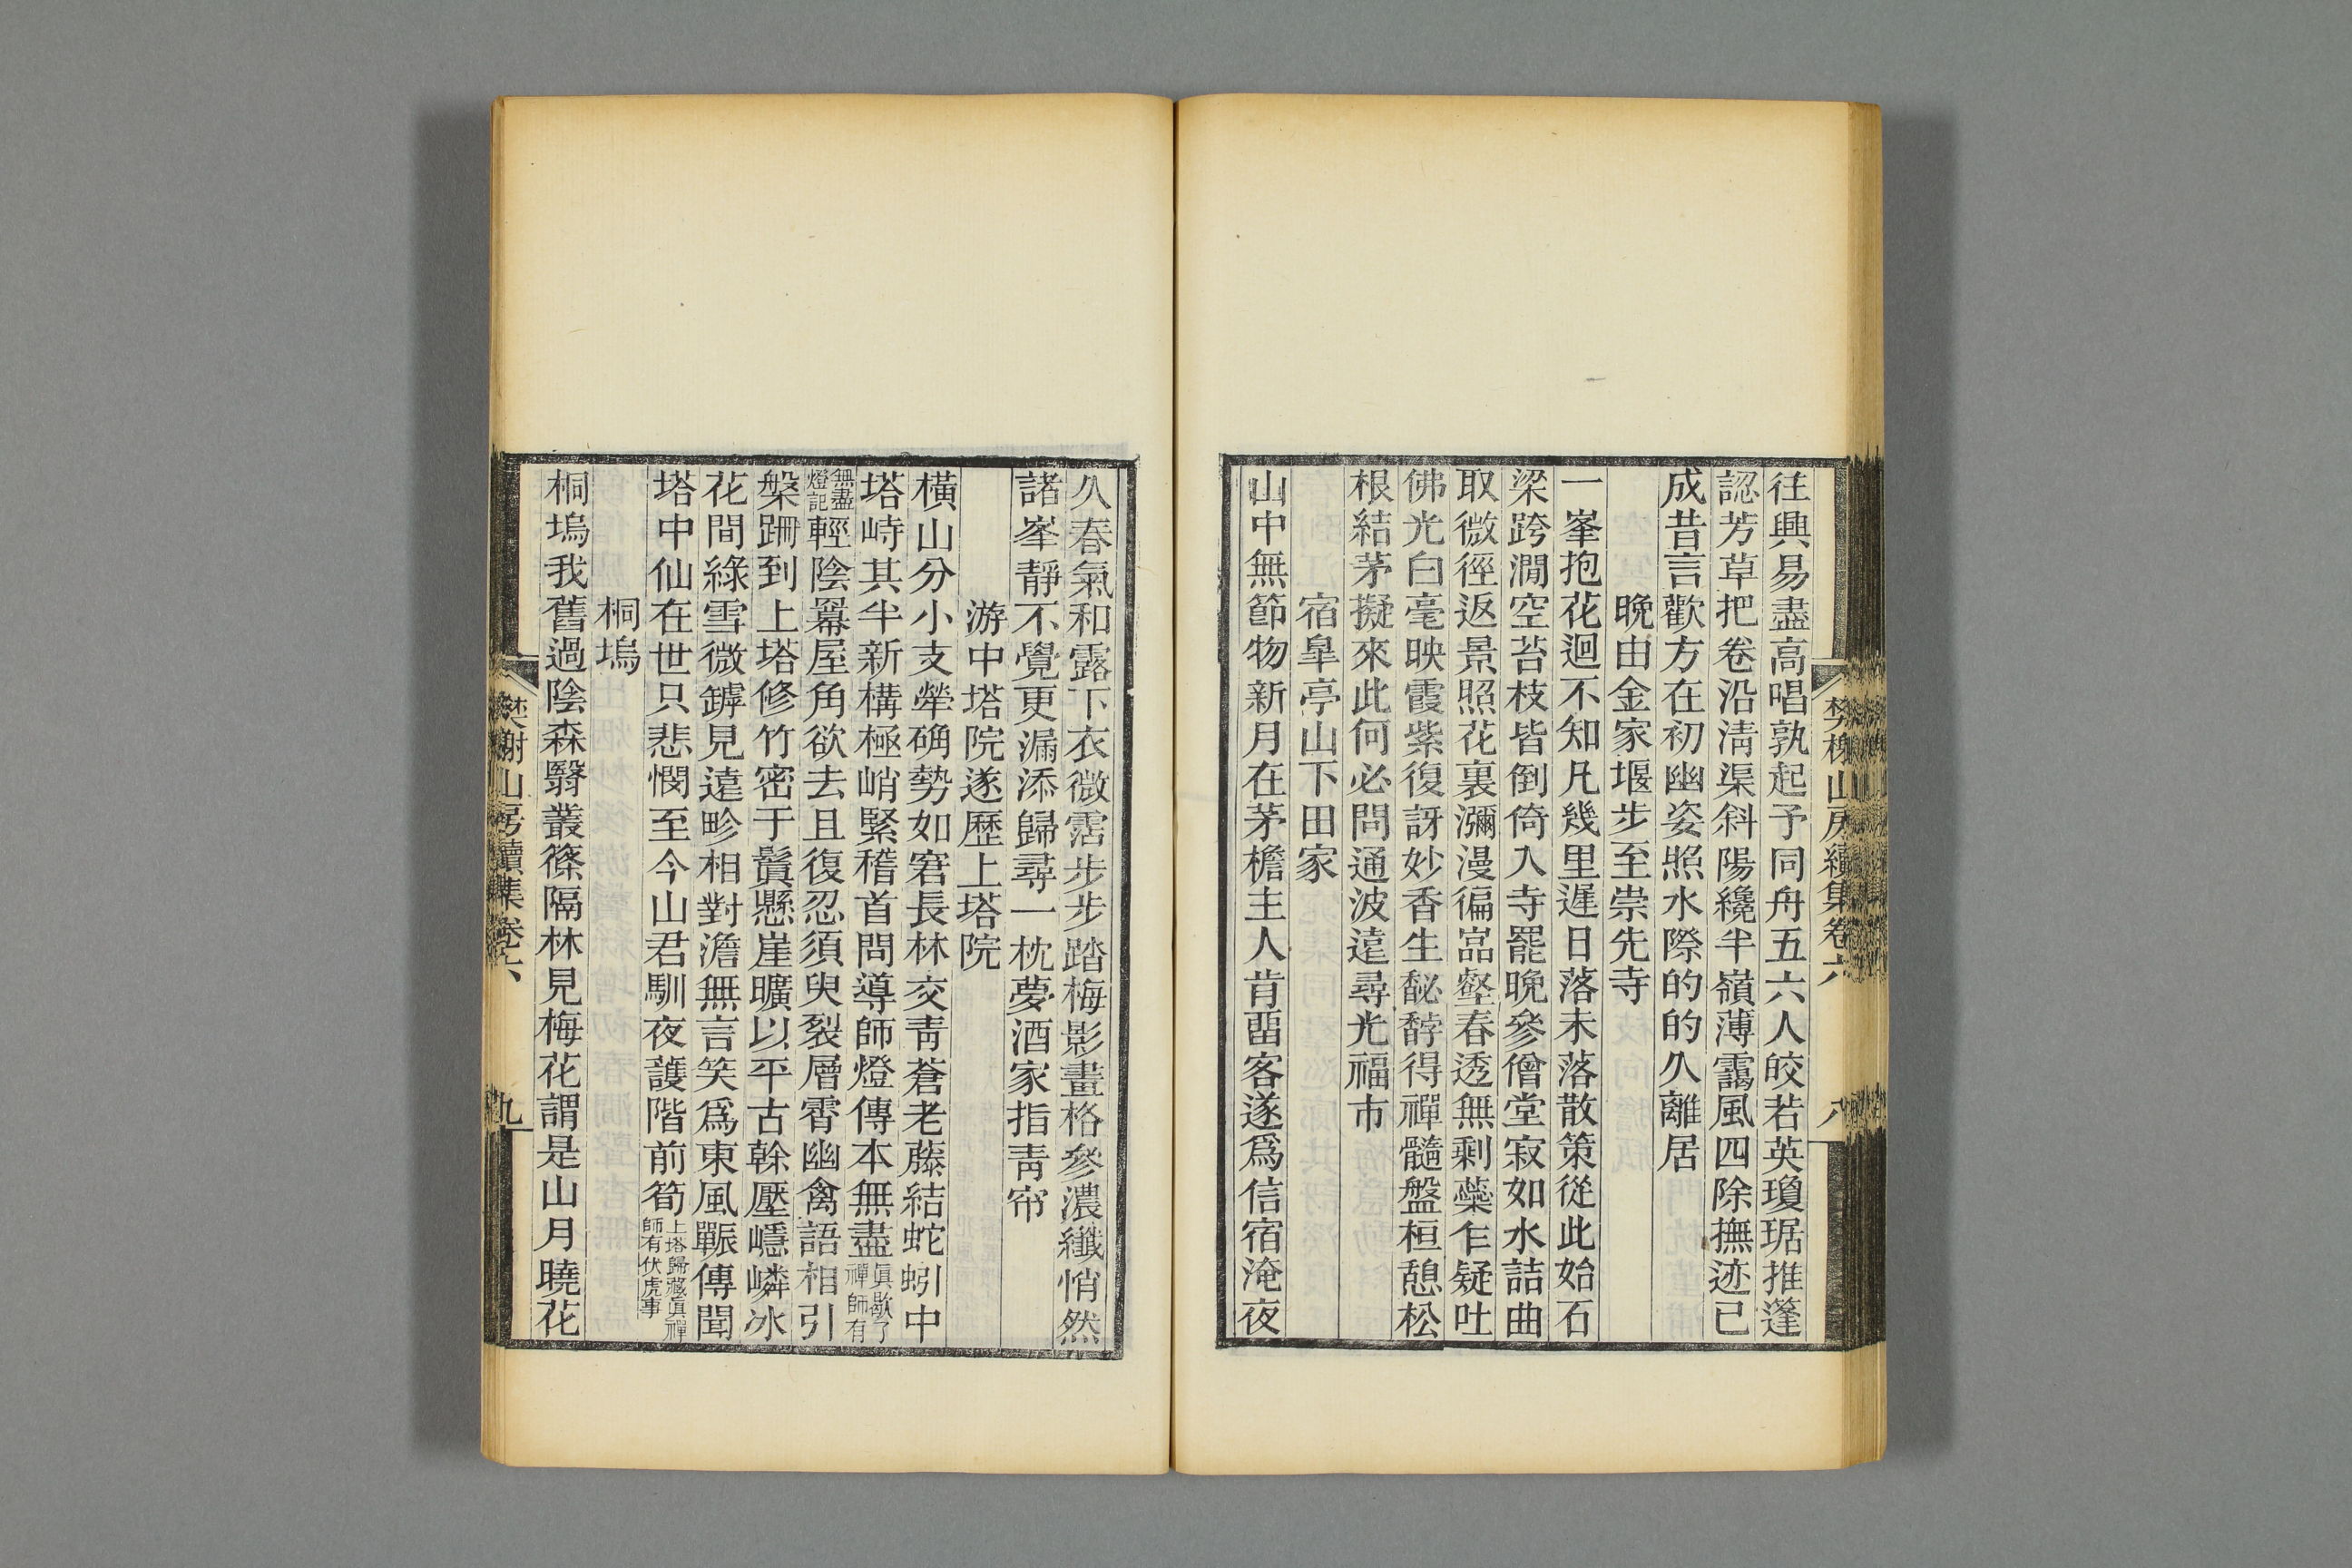 樊榭山房續集卷六
八
往興易盡高唱孰起予同舟五六人皎若英瓊琚推篷
認芳草把卷沿淸渠斜陽纔半嶺薄靄風四除撫迹已
成昔言歡方在初幽姿照水際的的久離居
晚由金家堰步至崇先寺
一峯抱花迴不知凡幾里遲日落未落散策從此始石
梁跨澗空苔枝皆倒倚入寺罷晚參僧堂寂如水詰曲
取微徑返景照花裏瀰漫徧嵓壑春透無剩蘂乍疑吐
佛光白毫映霞紫復訝妙香生馝馞得禪髓盤桓憩松
根結茅擬來此何必問通波遠尋光福市
宿皐亭山下田家
山中無節物新月在茅檐主人肯畱客遂爲信宿淹夜
久春氣和露下衣微霑步步踏梅影畫格參濃纖悄然
諸峯靜不覺更漏添歸尋一枕夢酒家指靑帘
游中塔院遂歷上塔院
橫山分小支犖确勢如窘長林交靑蒼老藤結蛇蚓中
塔峙其半新構極峭緊稽首問導師燈傳本無盡眞歇了禪師有
無盡燈記輕陰羃屋角欲去且復忍須臾裂層霄幽禽語相引
槃跚到上塔修竹密于鬒懸崖曠以平古榦壓嶾嶙冰
花間綠雪微罅見遠畛相對澹無言笑爲東風冁傳聞
塔中仙在世只悲憫至今山君馴夜護階前筍上塔歸藏眞禪師有伏虎事
桐塢
桐塢我舊過陰森翳叢篠隔林見梅花謂是山月曉花
樊榭山房續集卷六
九